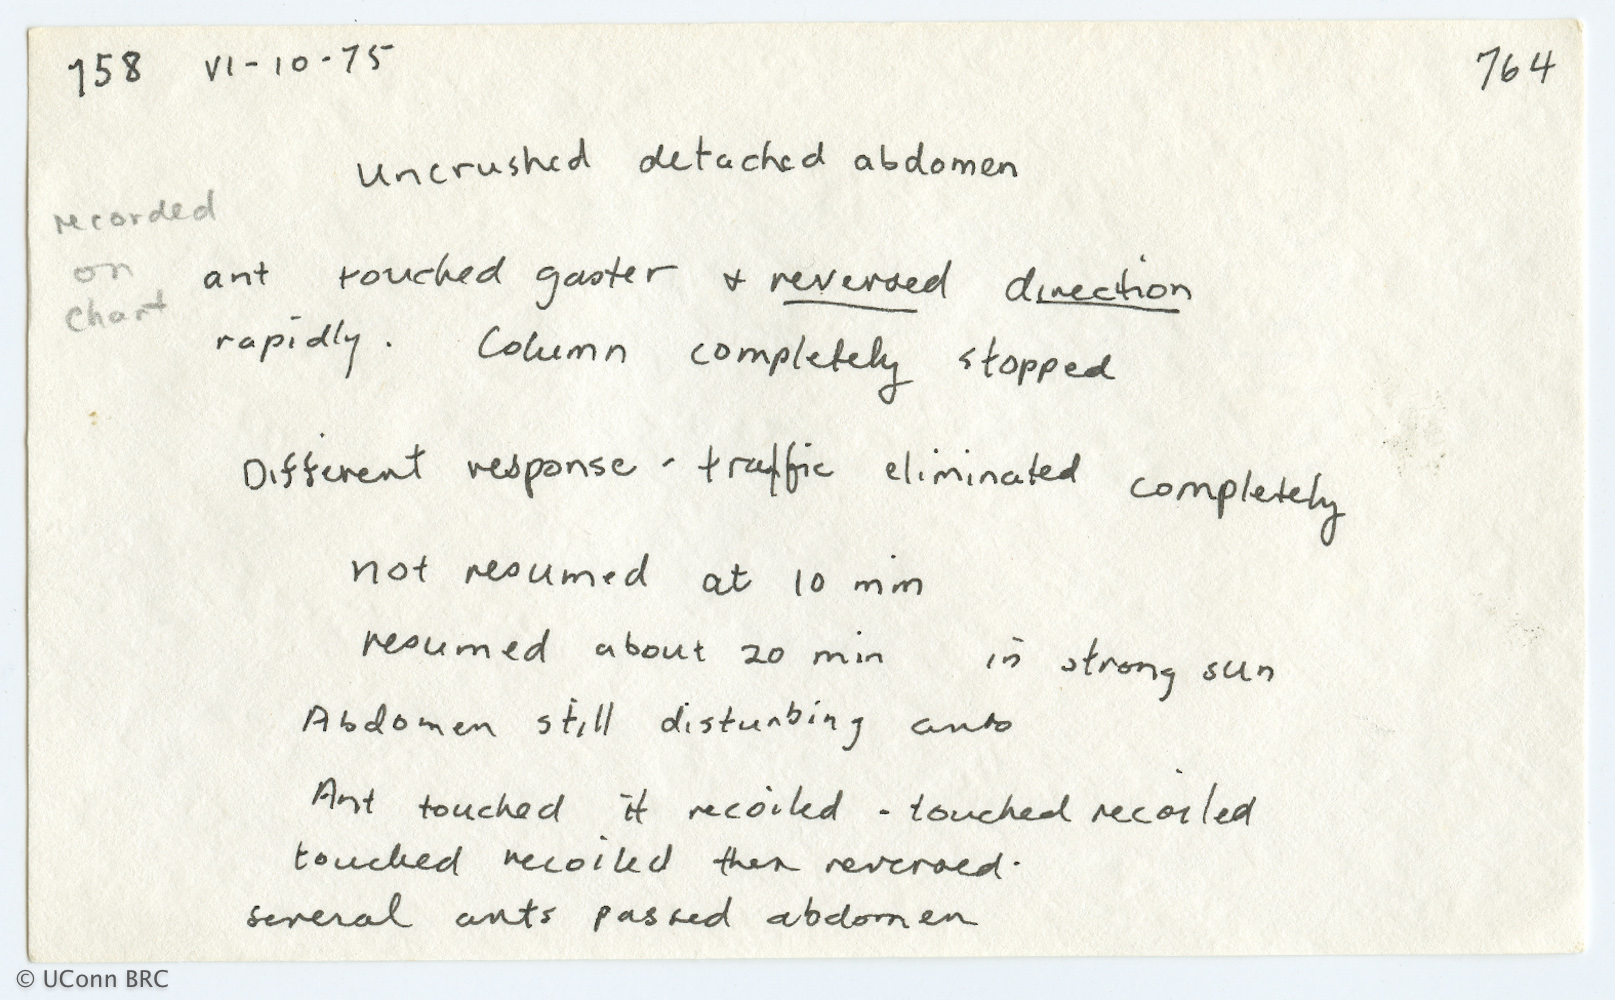 758 VI-10-75 764
Uncrushed detached abdomen
recorded
on
Chart
ant touched gaster & reversed direction
rapidly. Column completely stopped
Different response - traffic eliminated completely
not resumed at 10 min
resumed about 20 min in strong sun
Abdomen still disturbing ants
Ant touched it recoiled - touched recoiled
touched recoiled then reversed.
several ants passed abdomen
© UConn BRC